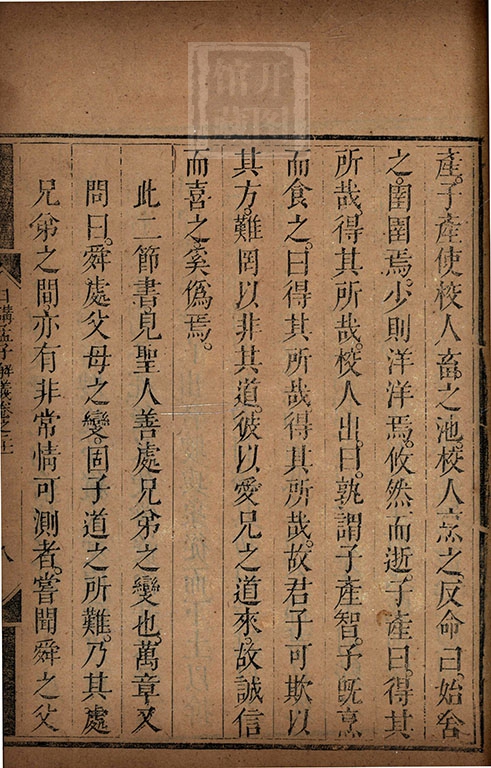 產子產使校人畜之池校人烹之反命曰始舍
之圉圉焉少則洋洋焉攸然而逝子產曰得其
所哉得其所哉校人出曰孰謂子產智予既烹
而食之曰得其所哉得其所哉故君子可欺以
其方難罔以非其道彼以愛兄之道來故誠信
而喜之奚偽焉
此二節書見聖人善處兄弟之變也萬章又
問曰舜處父母之變固子道之所難乃其處
兄弟之間亦有非常情可測者嘗聞舜之父
日講孟子解義卷之 八
开图
馆藏